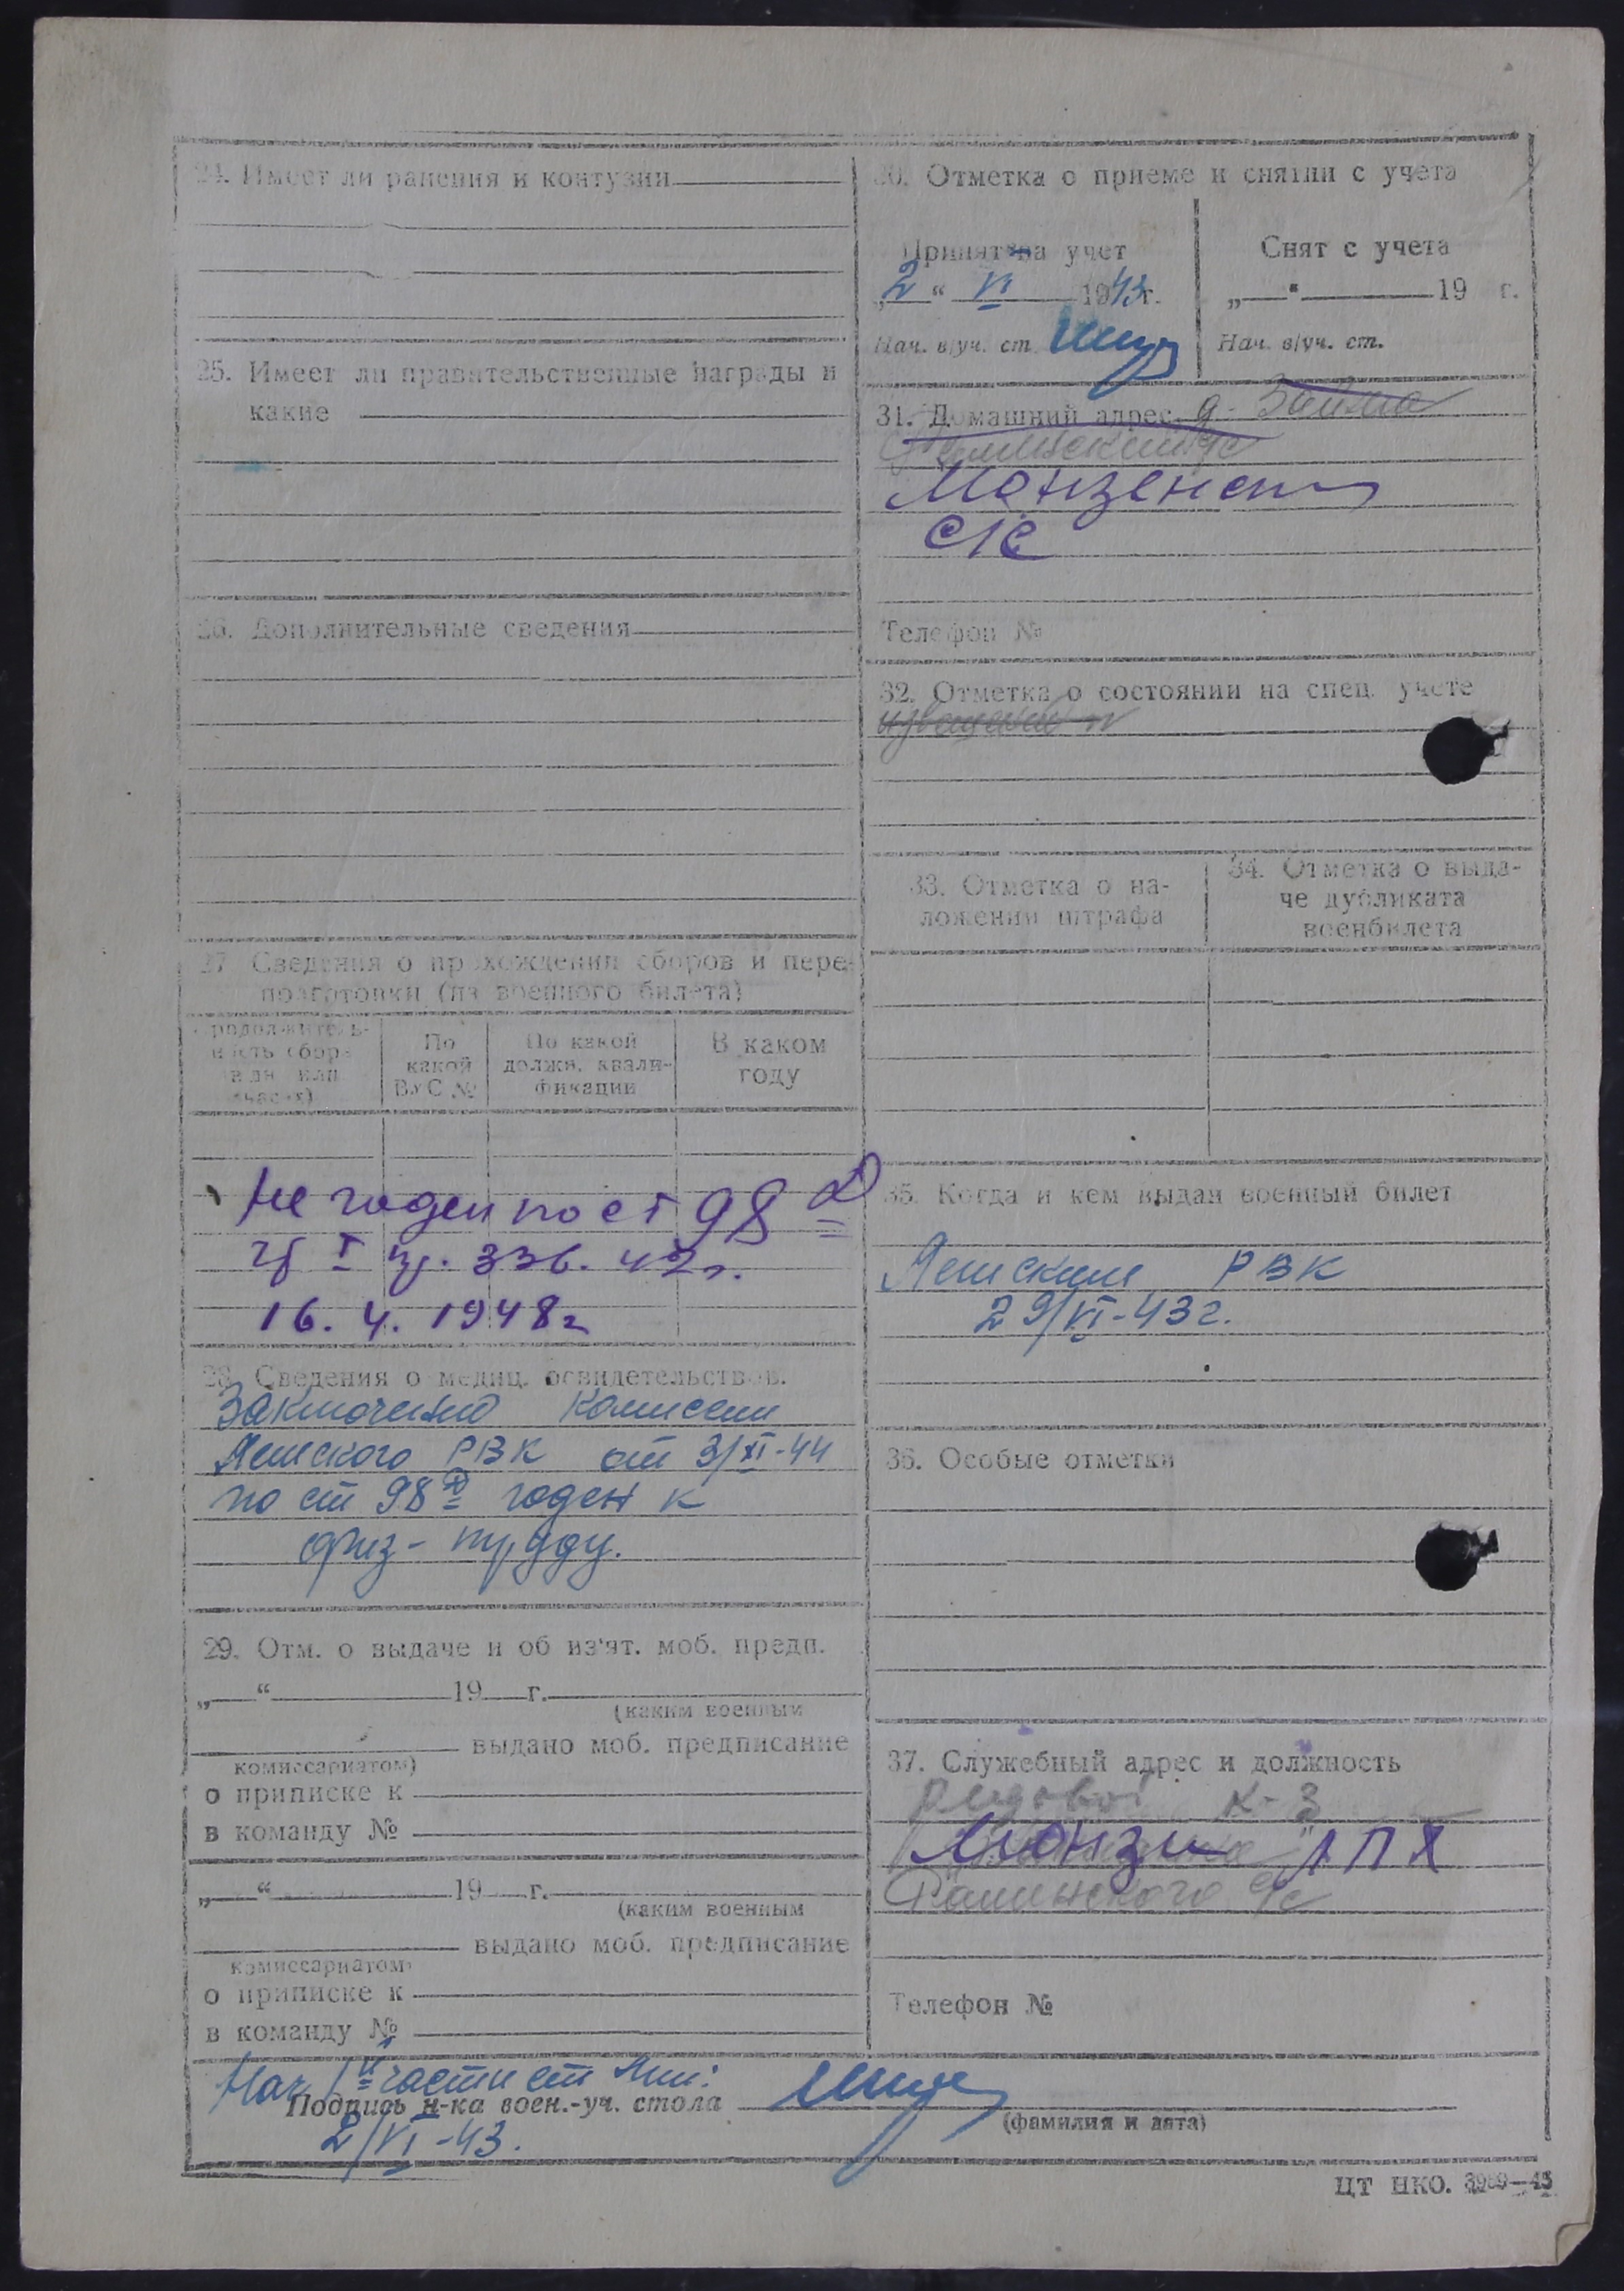 24. Имеет ли ранения и контузии
25. Имеет ли правительственные награды и
какие
26. Дополнительные сведения
27. Сведения о прохождении сборов и пере-
подготовки (из военного билета)
Продолжитель-
ность сбора
в дн. или
часах)
По
какой
ВУС №
По какой
должн. квали-
фикации
В каком
году
Не годен по ст 98 Д
гр I пр. 336. 42г.
16. 4. 1948г
28. Сведения о медиц. освидетельствов.
Заключено комиссии
Лешского РВК от 3/XI-44
по ст 98 Д годен к
физ-труду.
29. Отм. о выдаче и об из'ят. моб. предп.
„ “ 19 г.
(каким военным
выдано моб. предписание
комиссариатом)
о приписке к
в команду №
„ “ 19 г.
(каким военным
выдано моб. предписание
комиссариатом)
о приписке к
в команду №
30. Отметка о приеме и снятии с учета
Принят на учет
„2“ VI 1943г.
Нач. в/уч. ст.
Снят с учета
„ “ 19 г.
Нач. в/уч. ст.
31. Домашний адрес д. Займа
с/с
Монзенский
с/с
Телефон №
32. Отметка о состоянии на спец. учете
33. Отметка о на-
ложении штрафа
34. Отметка о выда-
че дубликата
военбилета
35. Когда и кем выдан военный билет
РВК
29/VI-43г.
36. Особые отметки
37. Служебный адрес и должность
Рядовой к-з
Монзи ЛПХ
с/с
Телефон №
Нач 1 части ст
Подпись н-ка воен.-уч. стола
(фамилия и дата)
2/VI-43.
ЦТ НКО. 3989—43